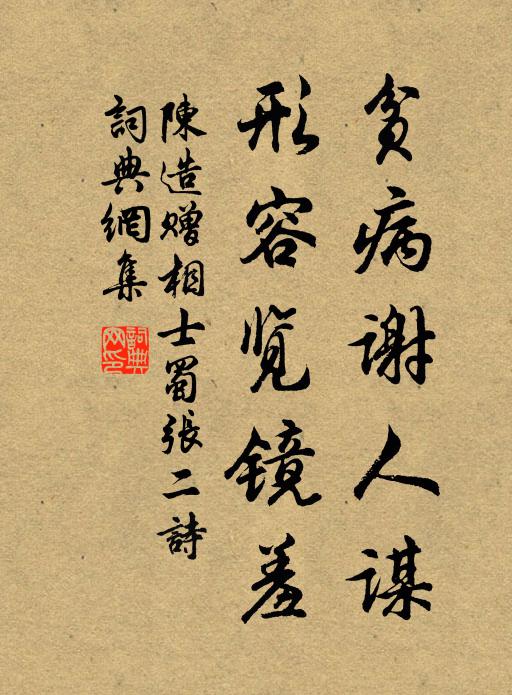 貧病謝人謀
形容览镜羞
陳造贈相士蜀張二詩
詞典網集
詞典
网印